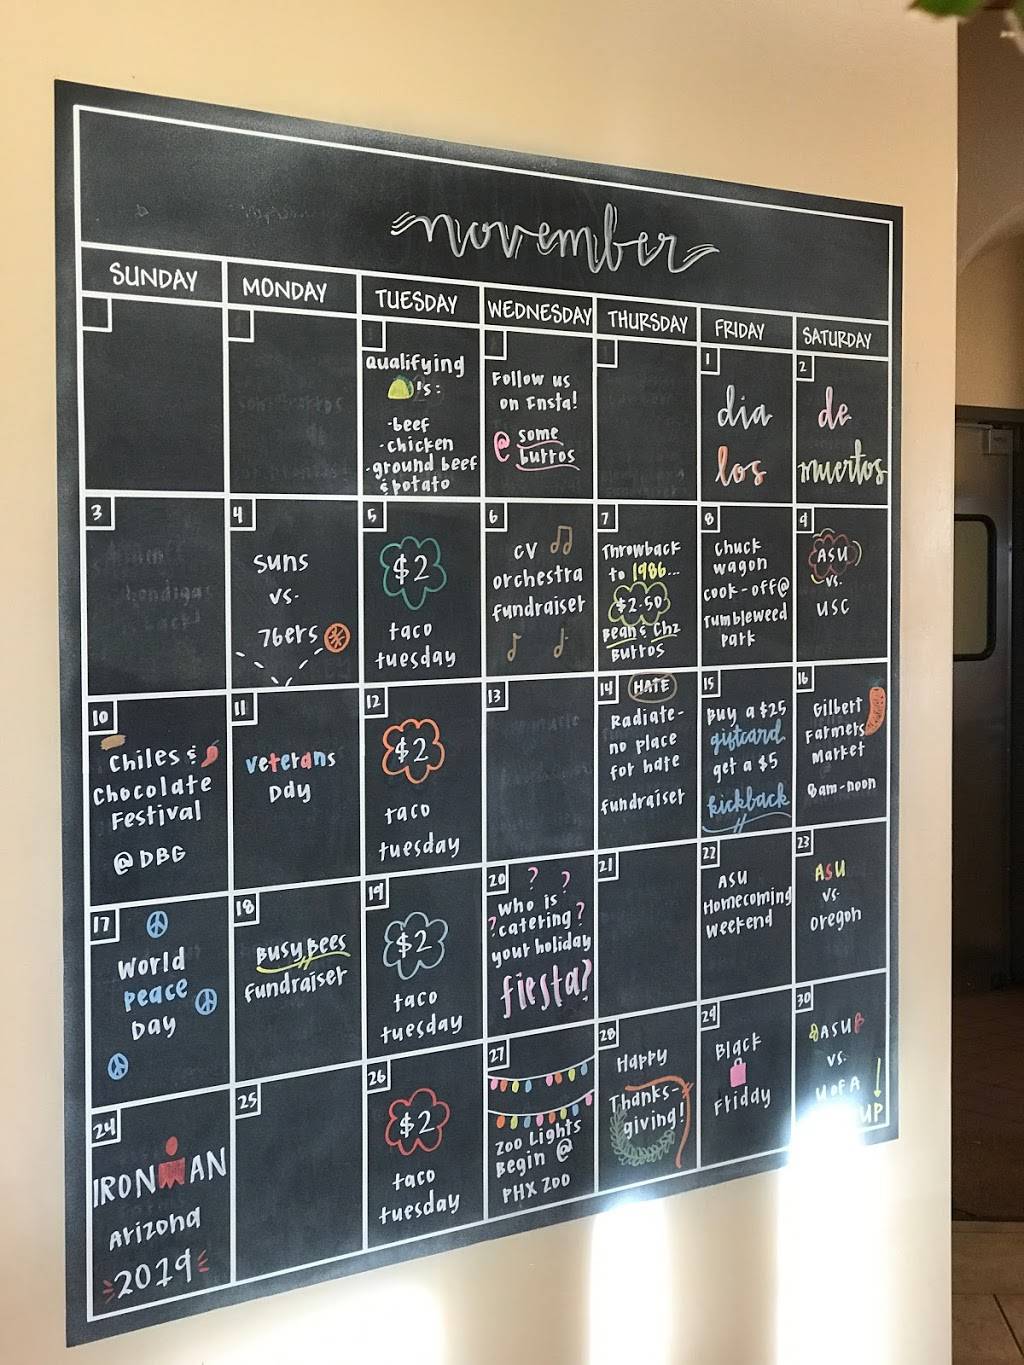 november
SUNDAY
MONDAY
TUESDAY
WEDNESDAY
THURSDAY
FRIDAY
SATURDAY
Qualifying
's:
-beef
-chicken
-ground beef
& potato
Follow us
on Insta!
@ some
burros
1
dia
los
2
de
muertos
3
4
Suns
vs.
76ers
5
$2
taco
tuesday
6
CV
orchestra
fundraiser
7
Throwback
to 1986...
$2.50
Bean & Chz
Burros
8
Chuck
wagon
cook-off @
Tumbleweed
Park
9
ASU
vs.
USC
10
Chiles &
Chocolate
Festival
@ DBG
11
Veterans
Day
12
$2
taco
tuesday
13
14
HATE
Radiate-
no place
for hate
fundraiser
15
Buy a $25
giftcard
get a $5
kickback
16
Gilbert
Farmers
Market
8am-noon
17
World
Peace
Day
18
Busy Bees
fundraiser
19
$2
taco
tuesday
20
? ?
Who is
? catering ?
your holiday
fiesta?
21
22
ASU
Homecoming
Weekend
23
ASU
vs.
Oregon
24
IRONMAN
Arizona
2019
25
26
$2
taco
tuesday
27
Zoo Lights
Begin @
PHX Zoo
28
Happy
Thanks-
giving!
29
Black
Friday
30
ASU
vs.
U of A
UP